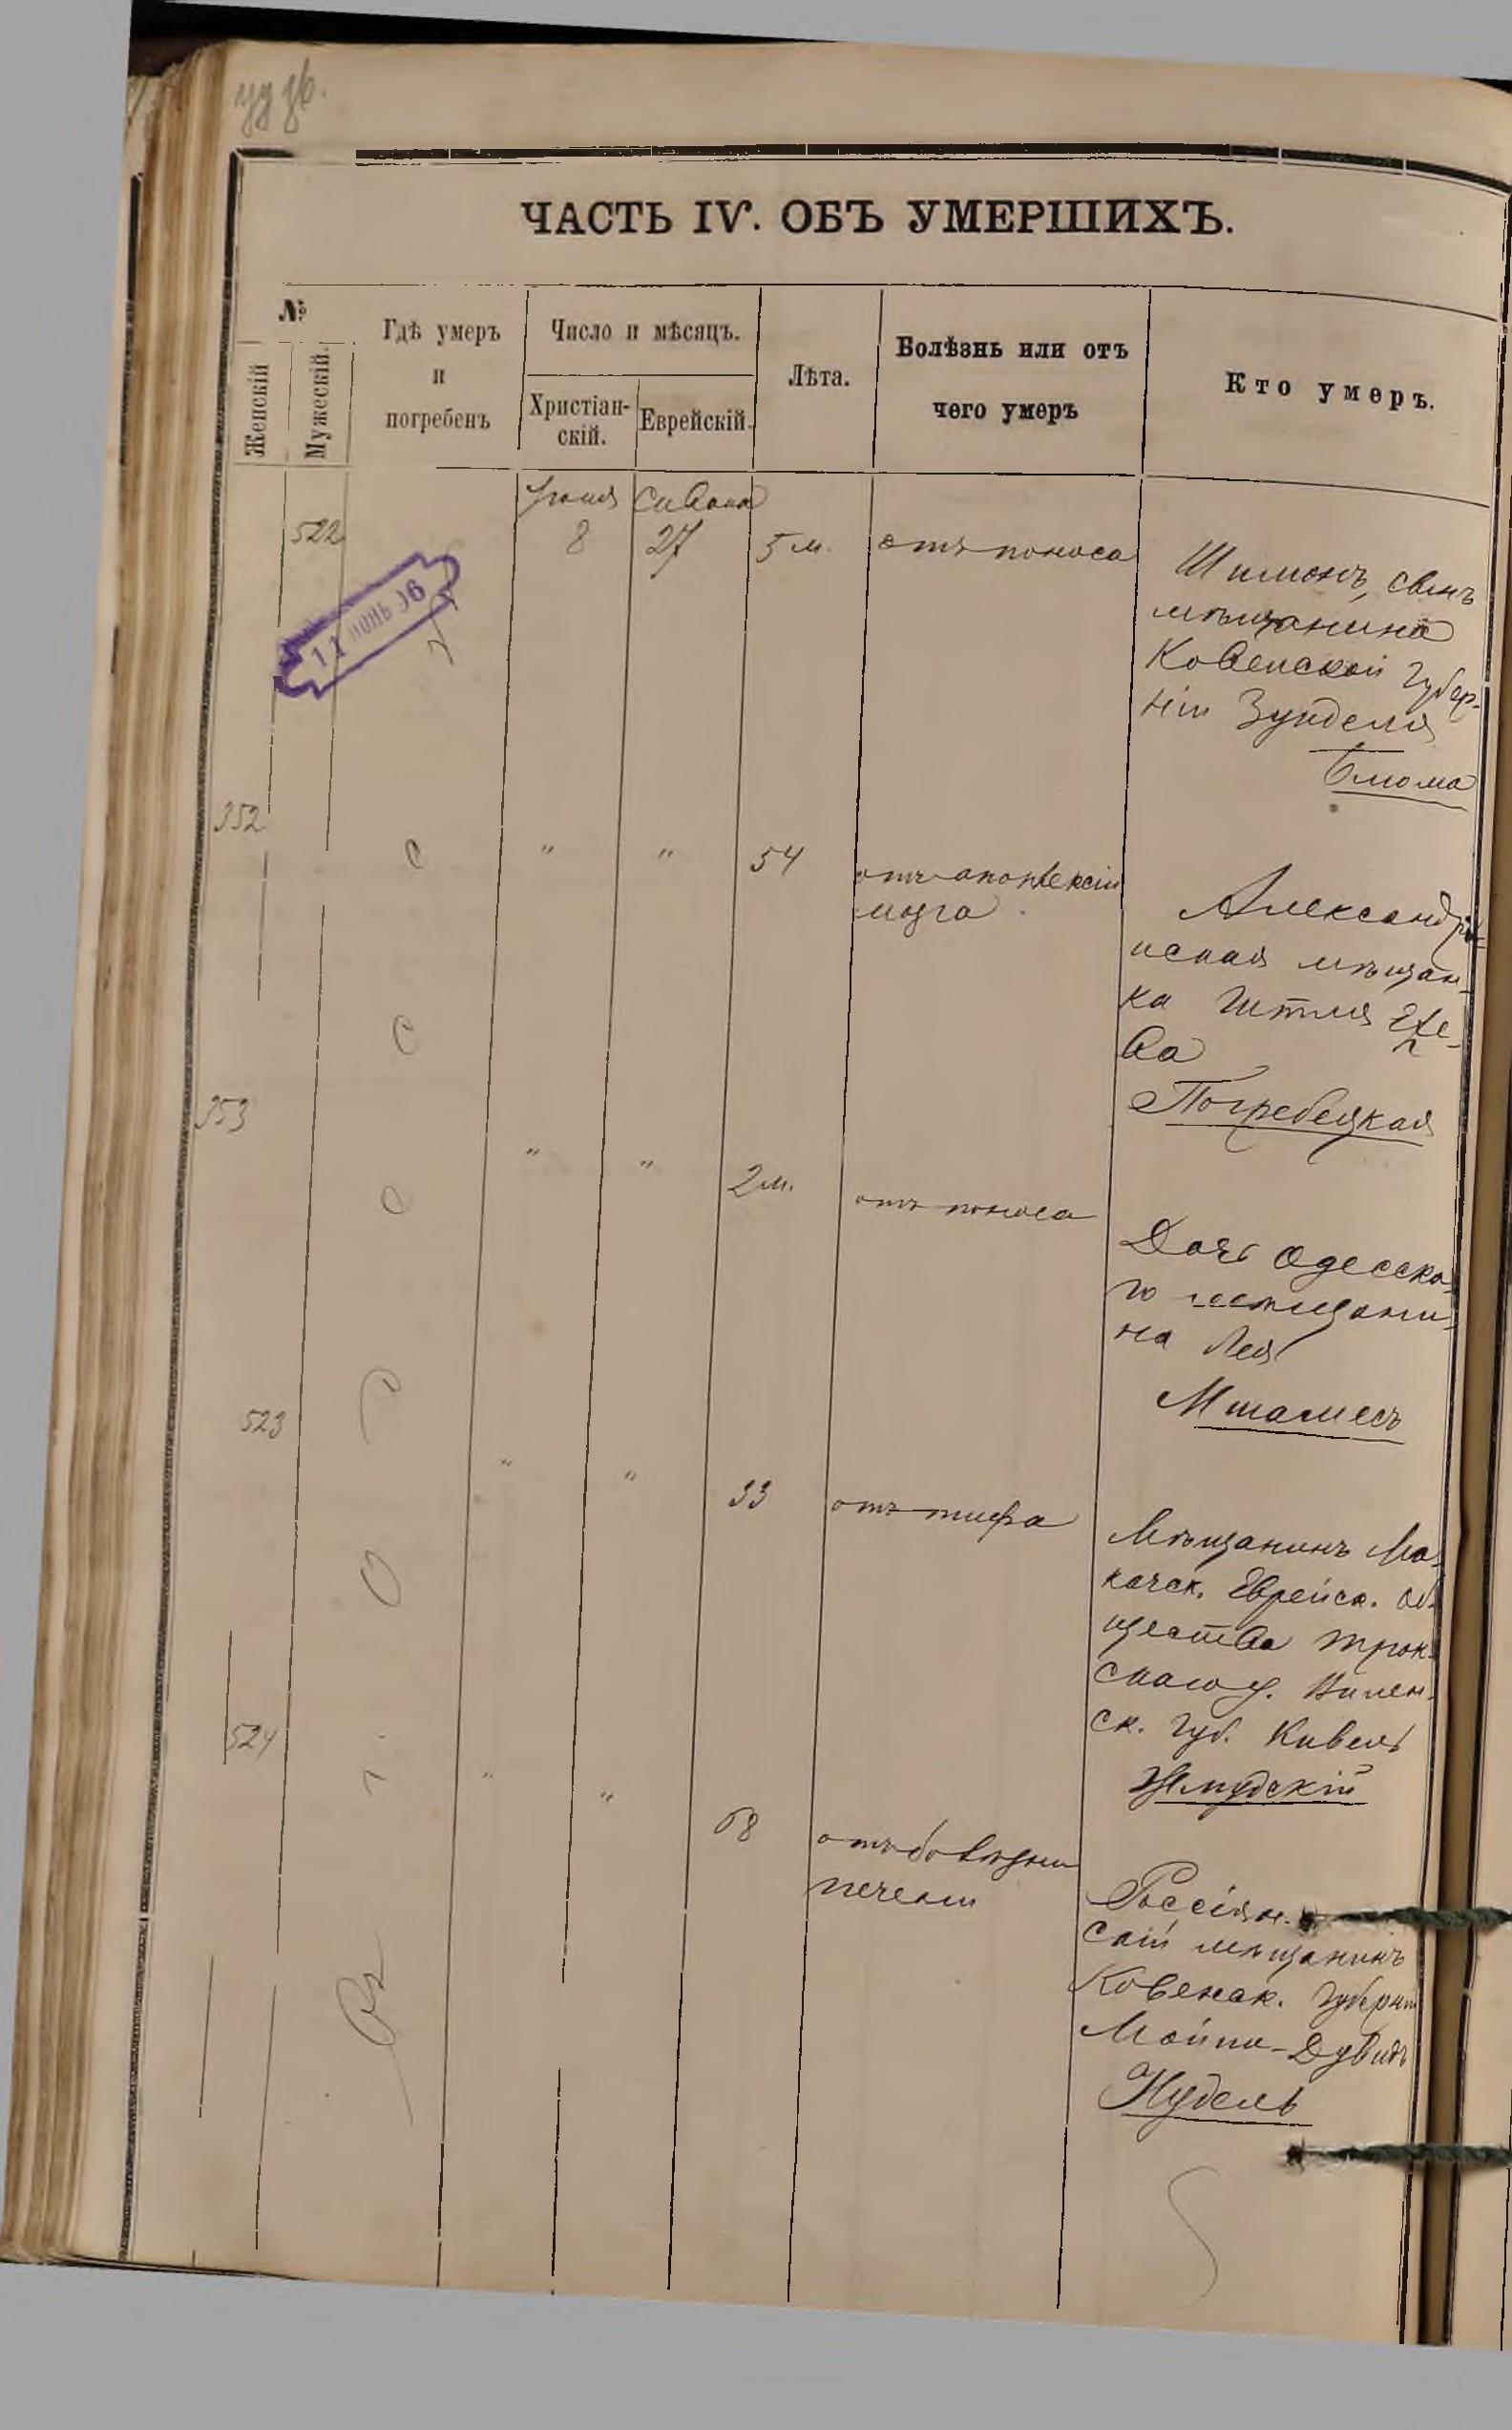 ЧАСТЬ IV. ОБЪ УМЕРШИХЪ.
№
Женскій
Мужескій.
Гдѣ умеръ
и
погребенъ
Число и мѣсяцъ.
Христіан-
скій.
Еврейскій.
Лѣта.
Болѣзнь или отъ
чего умеръ
Кто умеръ.
Іюня Сивана
522 8 27 5 м. отъ поноса
11 ІЮНЬ 96
Шимонъ, сынъ
мѣщанина
Ковенской Губер-
ніи Зунделя
Блюма
352 " " 54 отъ апоплексіи
мозга
Александрій-
ская мѣщан-
ка Гитля
Погребецкая
353 " " 2 м. отъ поноса
Дочь Одесска-
го мѣщани-
на Лея
Мшамесъ
523 " " 33 отъ тифа
Мѣщанинъ
Еврейск. Об-
щества Трок-
скаго у. Вилен-
ск. губ. Кивель
Жмудскій
524 " " 68 отъ болѣзни
печени
Россіен-
скій мѣщанинъ
Ковенск. Губерніи
Дувидъ
Нудель
С
С
С
Р
О
Г.